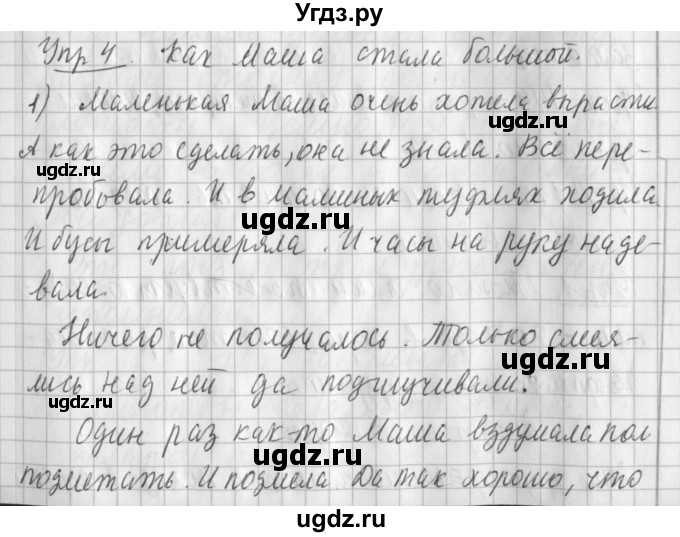 Угдз.ру
Упр 4. Как Маша стала большой.
1) Маленькая Маша очень хотела вырасти.
А как это сделать, она не знала. Всё пере-
пробовала. И в маминых туфлях ходила.
И бусы примеряла. И часы на руку наде-
вала.
Ничего не получалось. Только смея-
лись над ней да подшучивали.
Один раз как-то Маша вздумала пол
подметать. И подмела. Да так хорошо, что
ugdz.ru
ugdz.ru
ugdz.ru
ugdz.ru
ugdz.ru
ugdz.ru
ugdz.ru
ugdz.ru
ugdz.ru
ugdz.ru